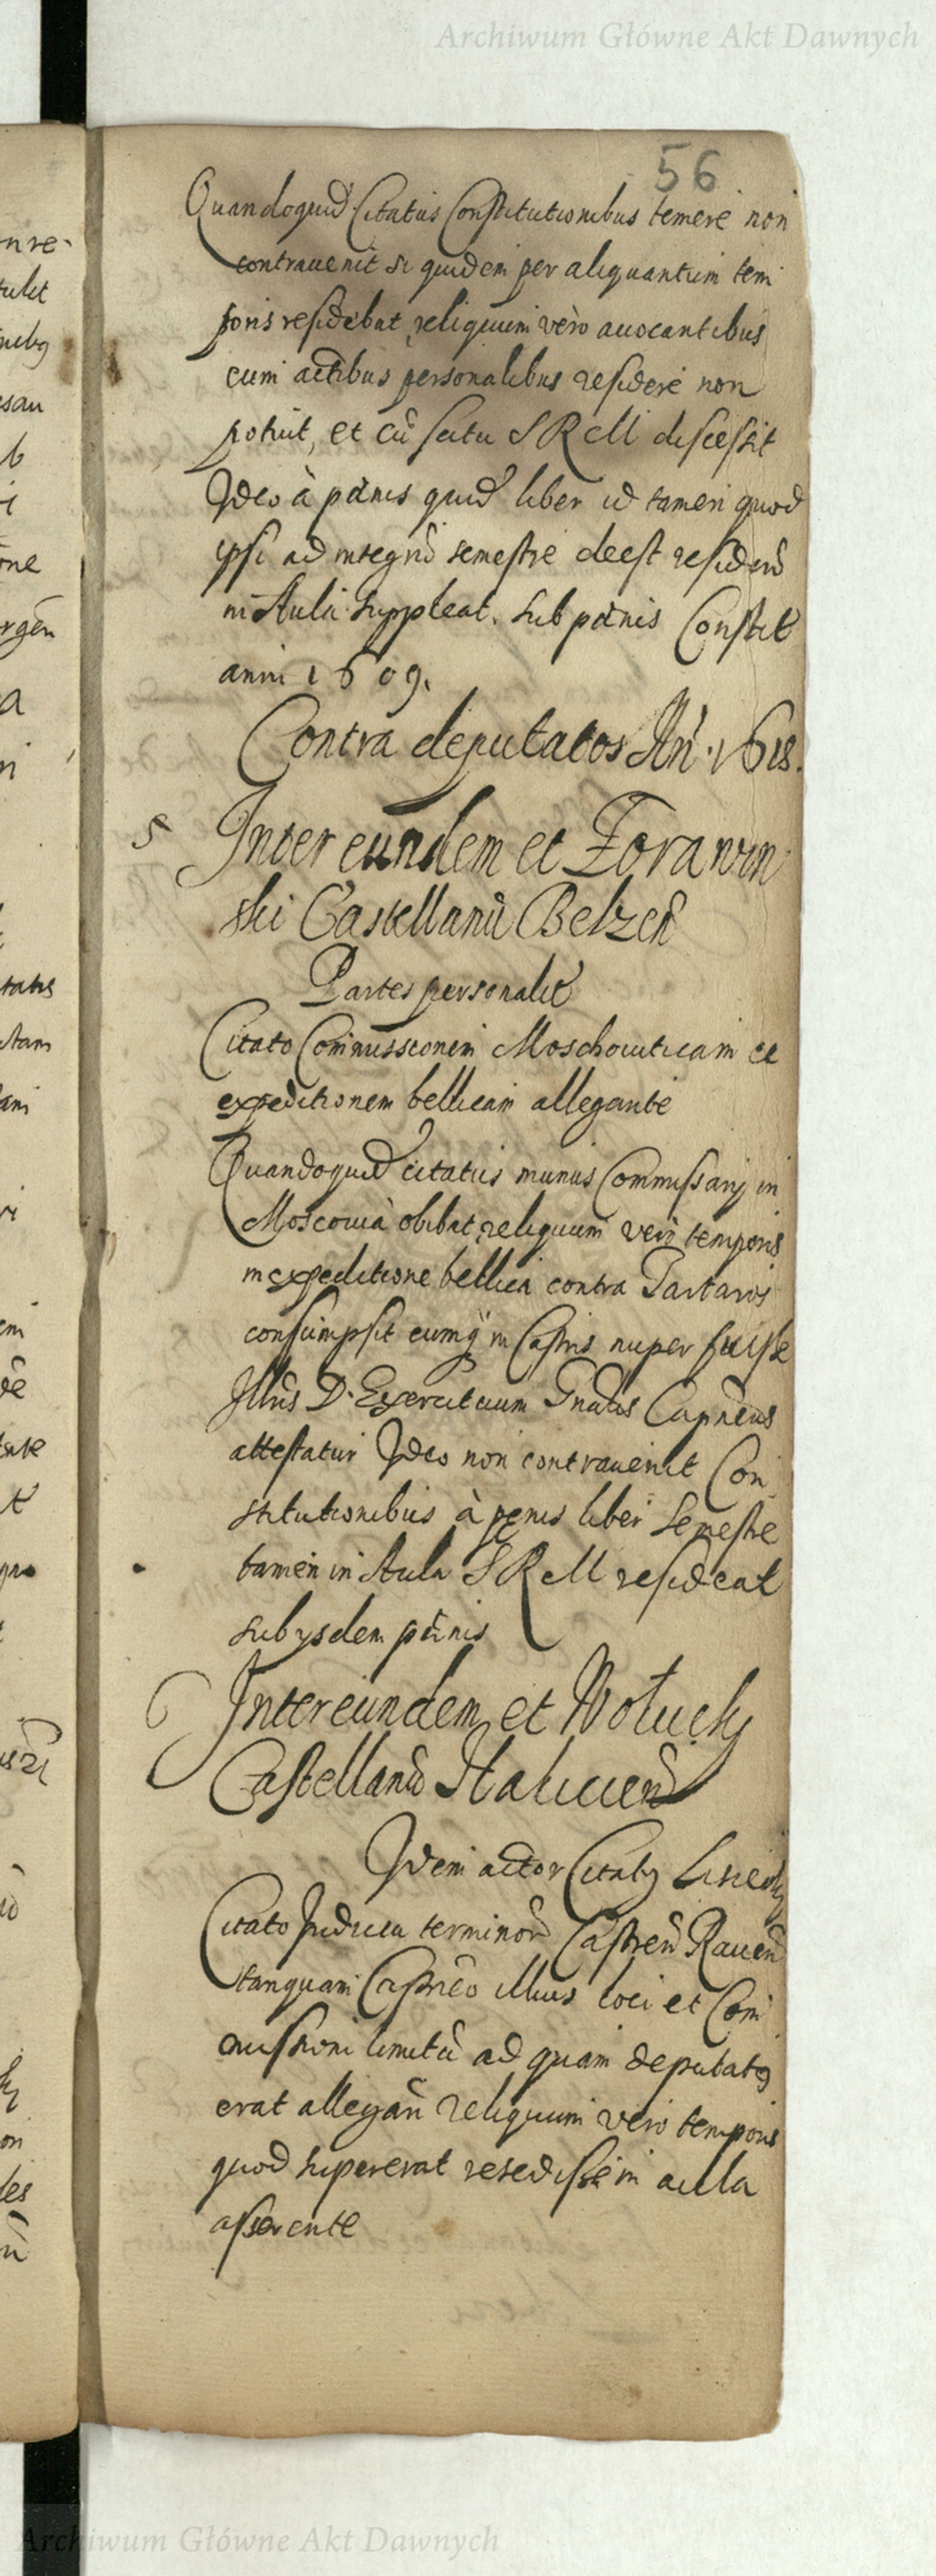 Archiwum Główne Akt Dawnych
56
Quandoquid Citatus Constitutionibus temere non
contravenit si quidem per aliquantum tem
poris residebat, reliquum vero avocantibus
cum actibus personalibus residere non
potuit, et cũ scitu S R M discessit
Ideo à pœnis quid liber id tamen quod
ipsi ad integrũ semestre deest residend
in Aula suppleat. sub pœnis Constit
anni 1609.
Contra deputatos An 1618.
5 Inter eundem et Zorawin
ski Castellanũ Belzen
Partes personalit
Citato Commissionem Moschoviticam et
expeditionem bellicam allegante
Quandoquid citatus munus Commissarij in
Moscovia obibat, reliquum vero temporis
in expeditione bellica contra Tartaros
consumpsit eumq in Castris nuper fuisse
Illus D. Exercituum Gnalis Capneus
attestatur Ideo non contravenit Con
stitutionibus à penis liber Semestre
tamen in Aula S R M resideat
sub ysdem pœnis
6 Inter eundem et Wolucky
Castellanũ Halicien
Idem actor Citatus
Citato Judicia terminorũ Castren Raven
tanquam Castreo illius loci et Com
missioni limitũ ad quam deputatus
erat allegan reliquum vero temporis
quod supererat resedisse in aula
asserente
Archiwum Główne Akt Dawnych